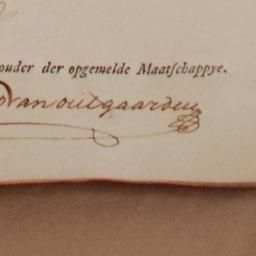 ouder der opgemelde Maatſchappye.
van outgaarden